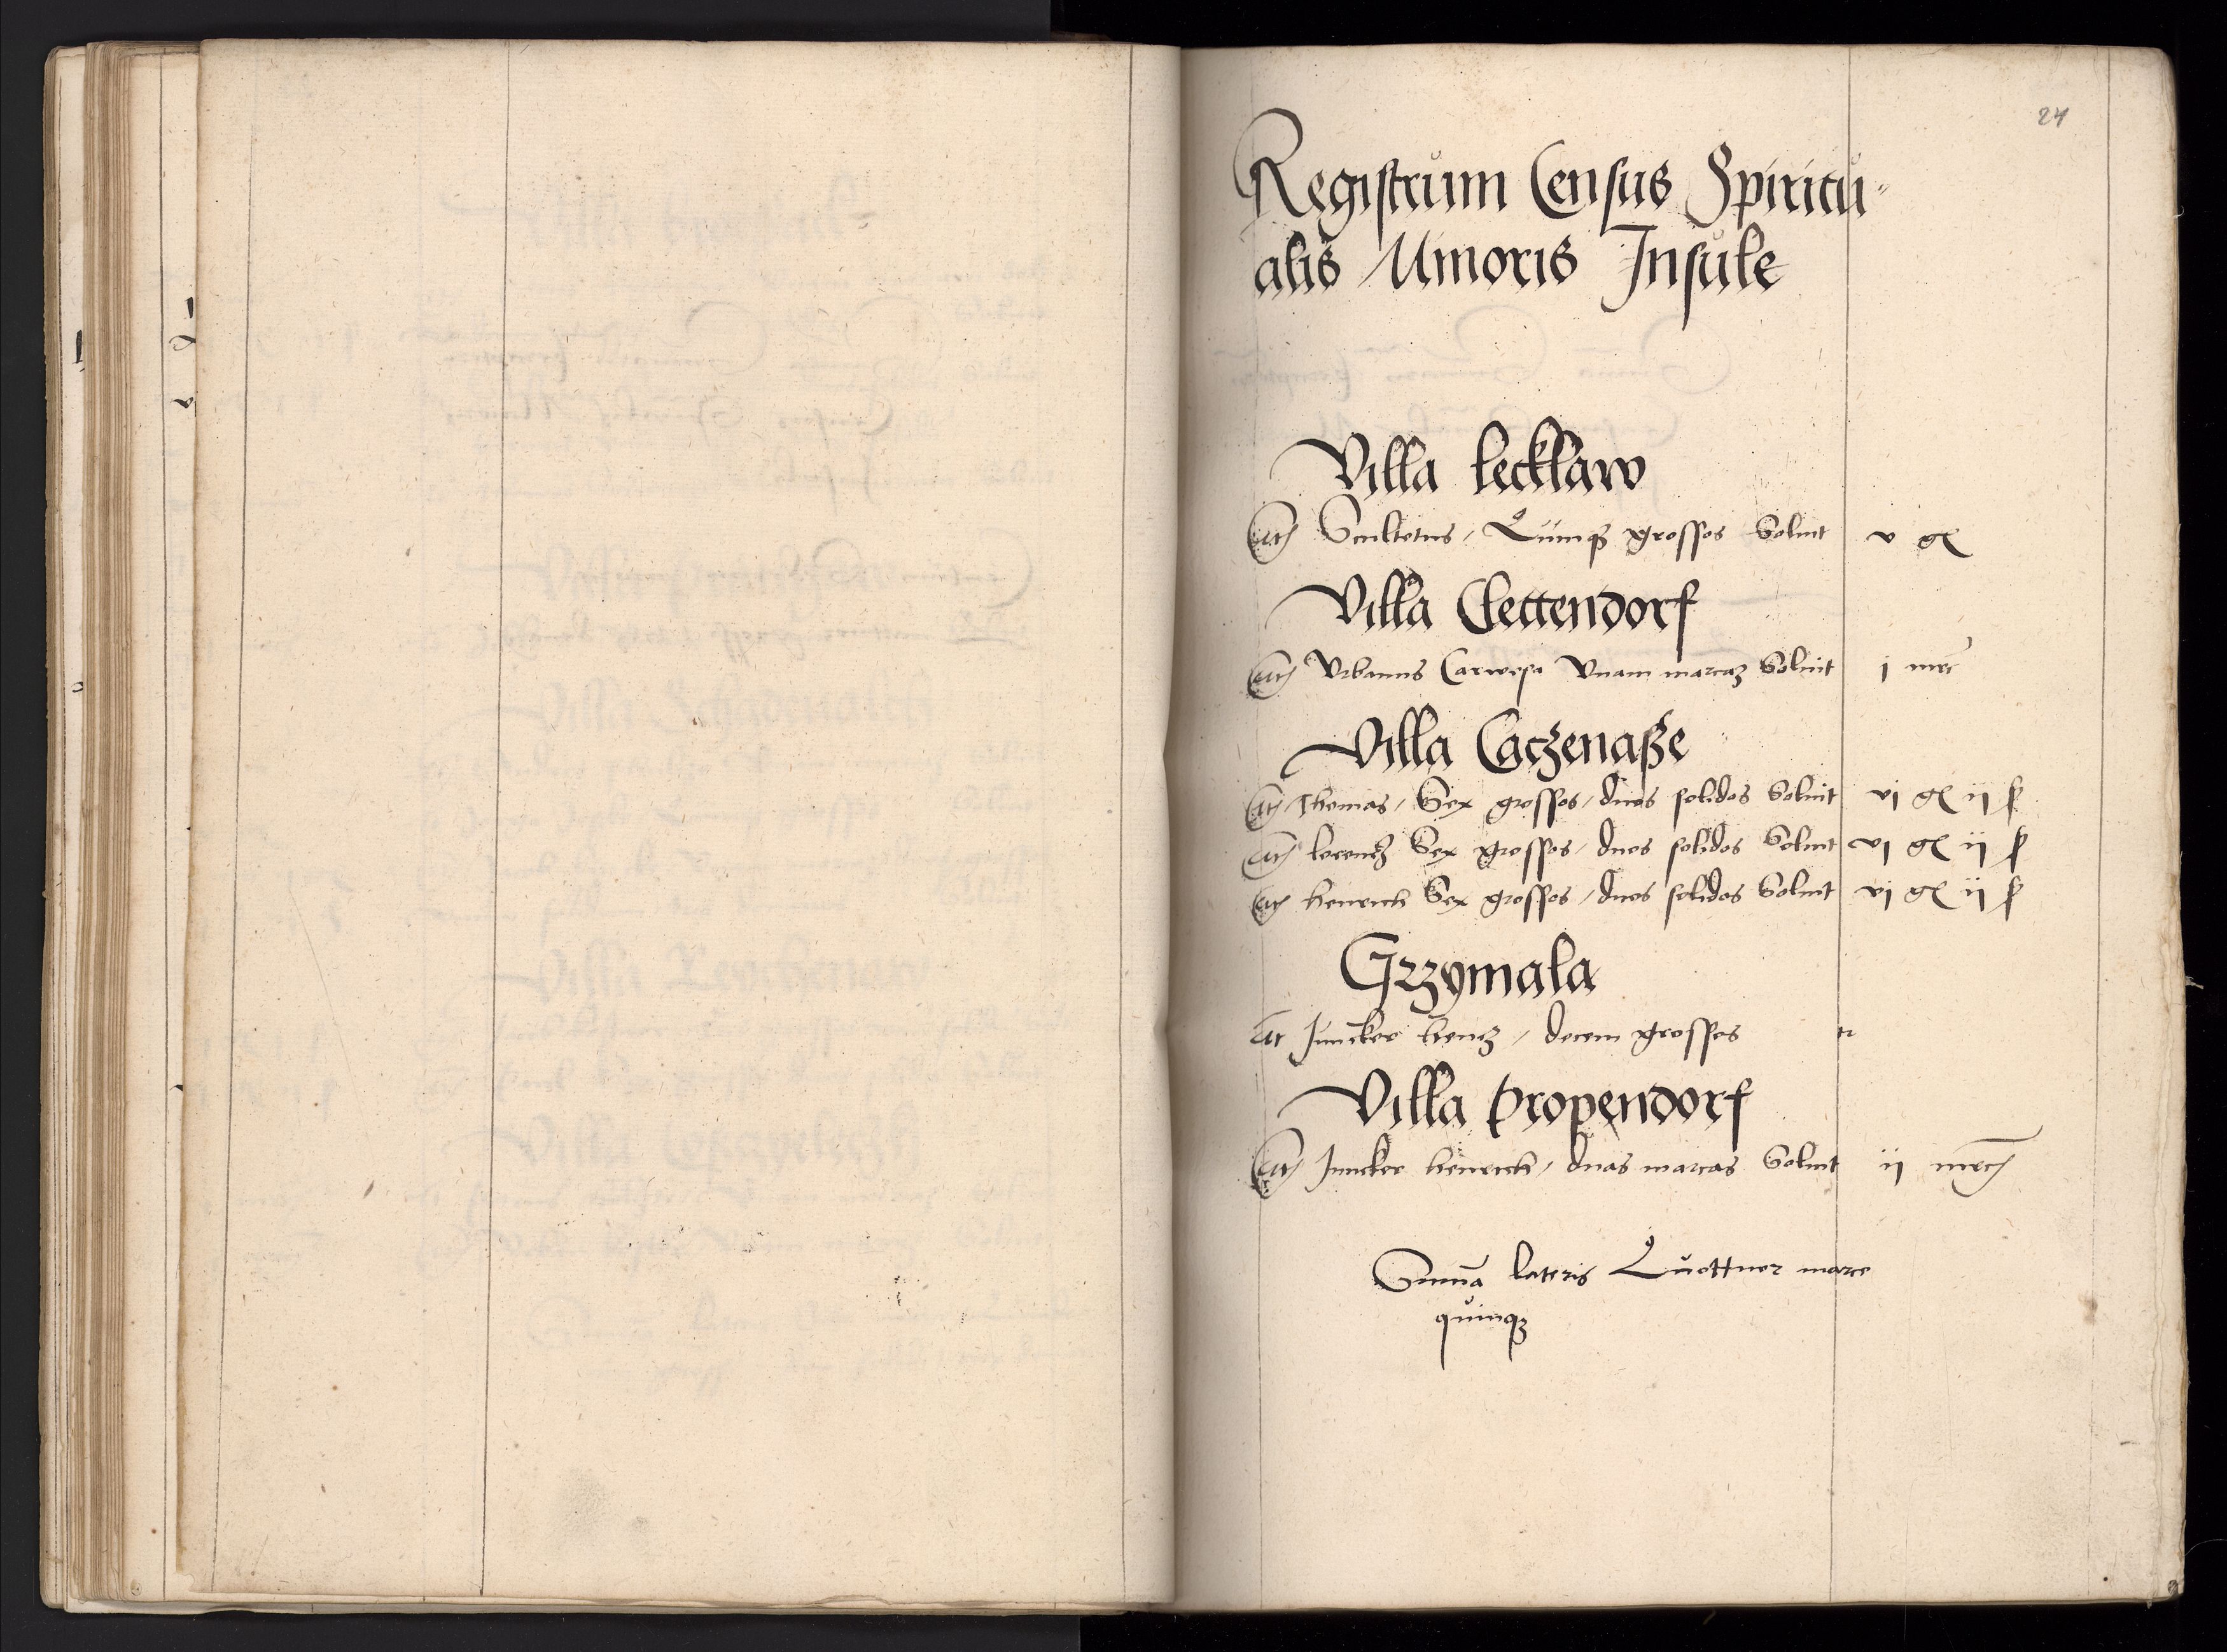 24
Registrum Census Spiritu⸗
alis Minoris Insule
Villa lecklaw
It Scultetus / Quinqȝ grossos Soluit v gl
Villa Clettendorf
It Vrbanus Carwesa Vnam marcaȝ Soluit j mrc
Villa Caczenaße
It Thomas / Sex grossos / duos solidos Soluit vj gl ij ſ
It lorencz Sex grossos / duos solidos Soluit vj gl ij ſ
It henrich Sex grossos / duos solidos Soluit vj gl ij ſ
Grzymala
It Juncker hencz / decem grossos
Villa Propendorf
It Juncker henrich / duas marcas Soluit ij mrc
Sum̄a lateris Quottuor marce
quinqȝ